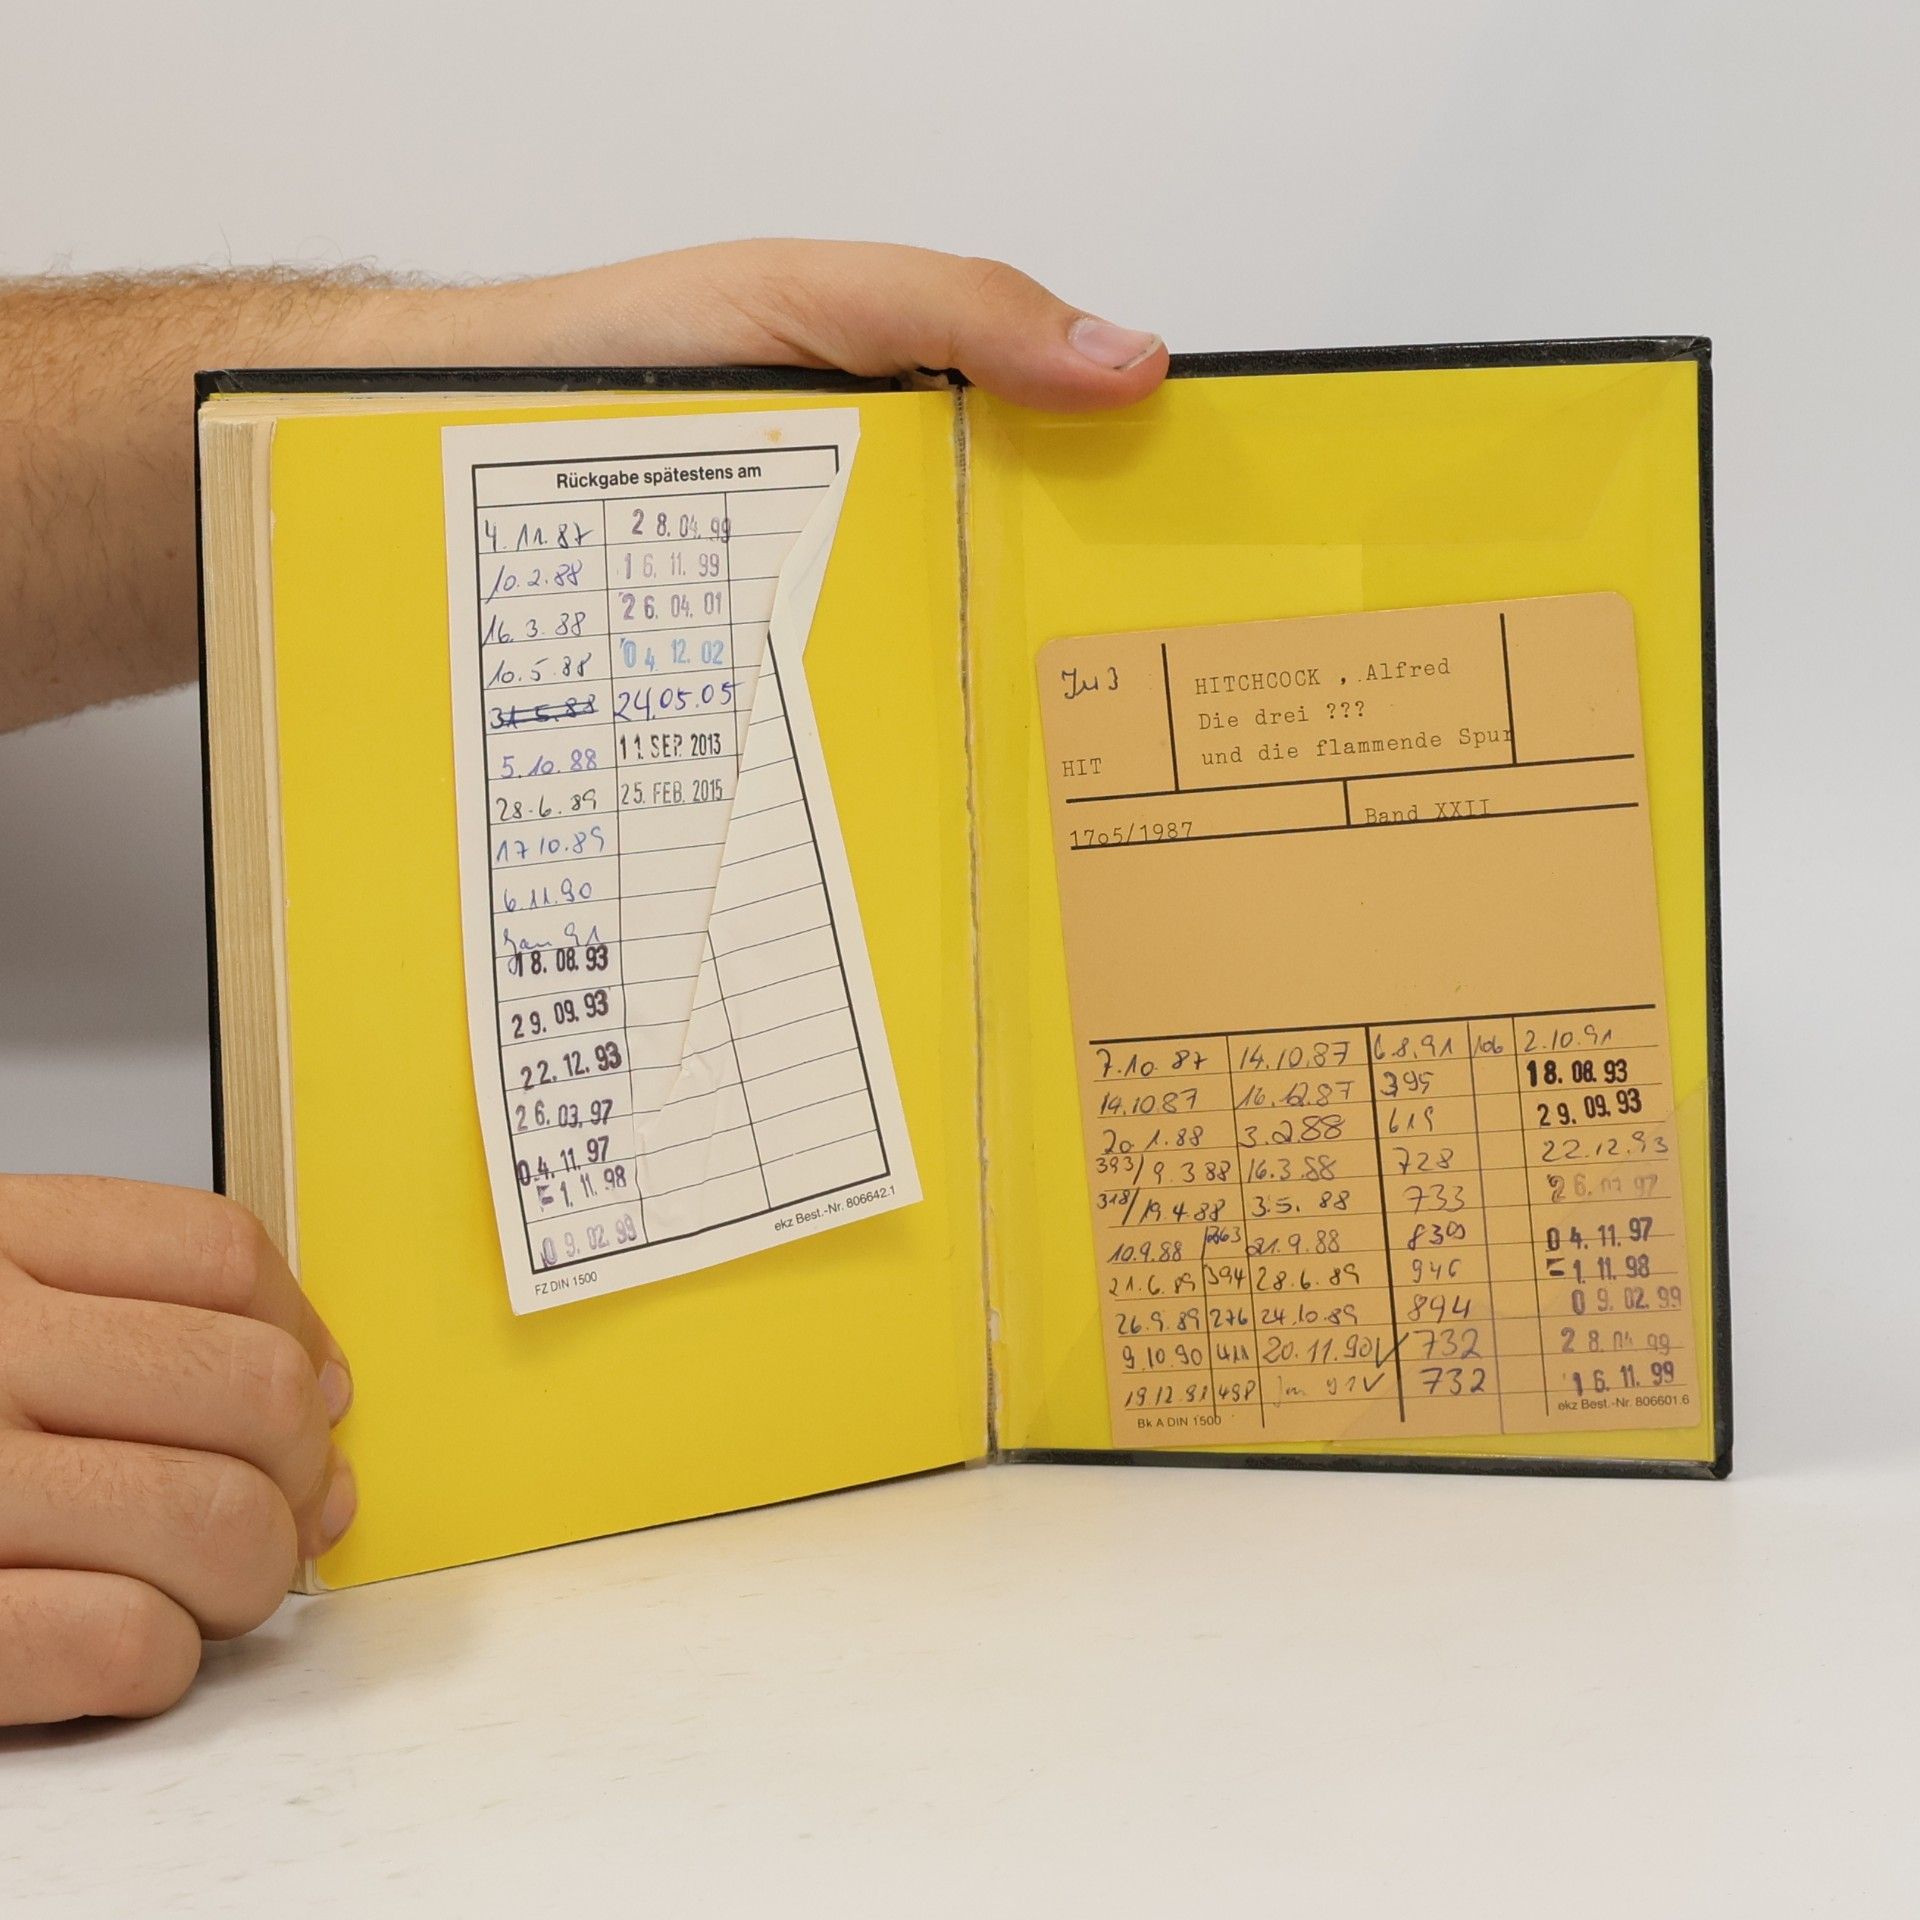 Rückgabe spätestens am
4. 11. 87 28. 04. 99
10. 2. 88 16. 11. 99
16. 3. 88 26. 04. 01
10. 5. 88 04. 12. 02
31. 5. 88 24.05.05
5. 10. 88 11. SEP. 2013
28. 6. 89 25. FEB. 2015
17 10. 89
6. 11. 90
Jan 91
18. 08. 93
29. 09. 93
22. 12. 93
26. 03. 97
04. 11. 97
- 1. 11. 98
09. 02. 99
FZ DIN 1500 ekz Best.-Nr. 806642.1
Ju 3
HITCHCOCK , Alfred
Die drei ???
und die flammende Spur
HIT
17o5/1987 Band XXII
7. 10. 87 14. 10. 87 6.8.91 106 2.10.91
14.10.87 16. 12. 87 395 18. 08. 93
20. 1. 88 3. 2. 88 619 29. 09. 93
393/ 9. 3 88 16. 3. 88 728 22.12.93
318/ 19. 4. 88 3. 5. 88 733 26. 97
10.9.88 21. 9. 88 830 04. 11. 97
21. 6. 89 394 28. 6. 89 946 - 1. 11. 98
26. 9. 89 276 24. 10. 89 894 09. 02. 99
9. 10. 90 411 20. 11. 90 ✓ 732 28. 04. 99
19. 12. 91 498 Jan 91 ✓ 732 16. 11. 99
Bk A DIN 1500 ekz Best.-Nr. 806601.6